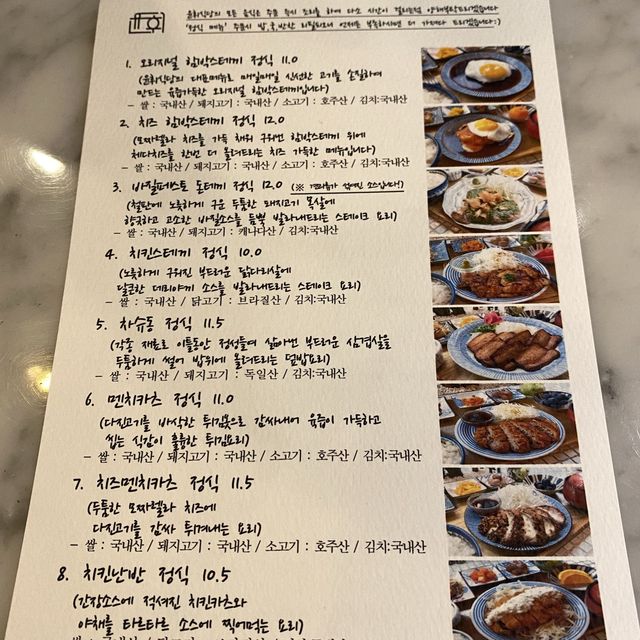 윤휘식당의 모든 음식은 주문 즉시 조리를 하여 다소 시간이 걸리는점 양해부탁드리겠습니다
'정식 메뉴' 주문시 밥,국,반찬 리필되오니 언제든 말씀하시면 더 가져다 드리겠습니다:)
1. 오리지널 함박스테끼 정식 11.0
(윤휘식당의 대표메뉴로 매일매일 신선한 고기를 손질하여
만드는 육즙가득한 오리지널 함박스테끼입니다)
- 쌀 : 국내산 / 돼지고기 : 국내산 / 소고기 : 호주산 / 김치:국내산
2. 치즈 함박스테끼 정식 12.0
(모짜렐라 치즈를 가득 채워 구워낸 함박스테끼 위에
체다치즈를 한번 더 올려드리는 치즈 가득한 메뉴입니다)
- 쌀 : 국내산 / 돼지고기 : 국내산 / 소고기 : 호주산 / 김치:국내산
3. 바질페스토 돈테끼 정식 12.0 (※ 견과류가 섞여진 소스입니다!)
(철판에 노릇하게 구운 두툼한 돼지고기 목살에
향긋하고 고소한 바질소스를 듬뿍 발라내드리는 스테이크 요리)
- 쌀 : 국내산 / 돼지고기 : 캐나다산 / 김치:국내산
4. 치킨스테끼 정식 10.0
(노릇하게 구워진 부드러운 닭다리살에
달콤한 데미야끼 소스를 발라내드리는 스테이크 요리)
- 쌀 : 국내산 / 닭고기 : 브라질산 / 김치:국내산
5. 차슈동 정식 11.5
(각종 재료로 이틀동안 정성들여 삶아낸 부드러운 삼겹살을
두툼하게 썰어 밥위에 올려드리는 덮밥요리)
- 쌀 : 국내산 / 돼지고기 : 독일산 / 김치:국내산
6. 멘치카츠 정식 11.0
(다진고기를 바삭한 튀김옷으로 감싸내어 육즙이 가득하고
씹는 식감이 훌륭한 튀김요리)
- 쌀 : 국내산 / 돼지고기 : 국내산 / 소고기 : 호주산 / 김치:국내산
7. 치즈멘치카츠 정식 11.5
(두툼한 모짜렐라 치즈에
다진고기를 감싸 튀겨내는 요리)
- 쌀 : 국내산 / 돼지고기 : 국내산 / 소고기 : 호주산 / 김치:국내산
8. 치킨난반 정식 10.5
(간장소스에 적셔진 치킨카츠와
야채를 타르타르 소스에 찍어먹는 요리)